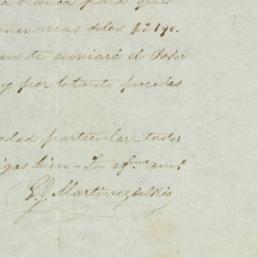 para que
mas de los $2190.
te enviaré el Poder
y por lo tanto puedes
particular todos
bien – Tu af.mo am.o
Martinez del Rio